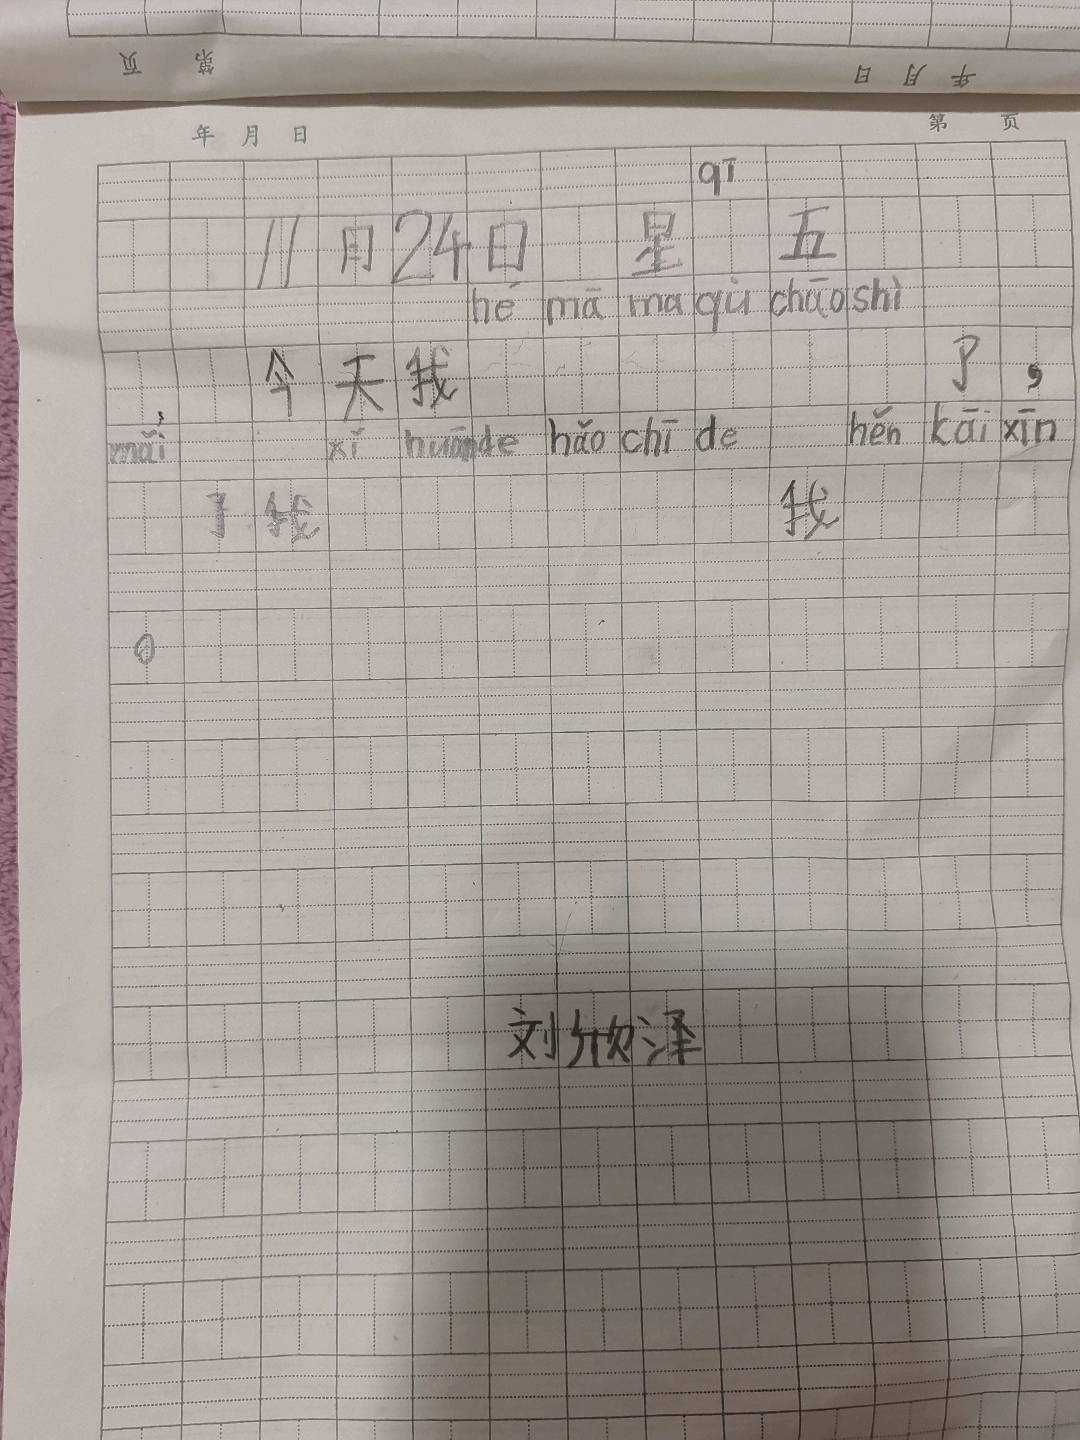 页 第 日 月 年
年 月 日 第 页
qī
11月24日 星 五
hé mā ma qù chāo shì
今天我 了，
mǎi xǐ huānde hǎo chī de hěn kāi xīn
了我 我
。
刘欣泽